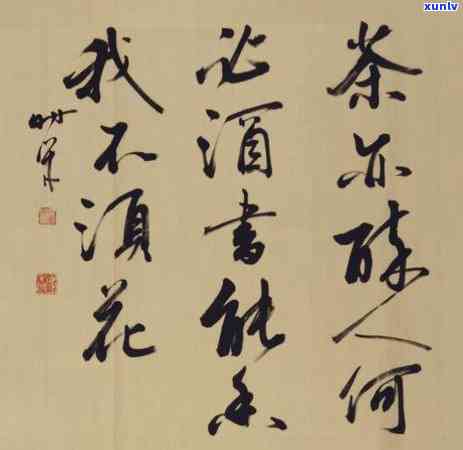 茶亦醉人何
必酒書能香
我不須花
xunlv